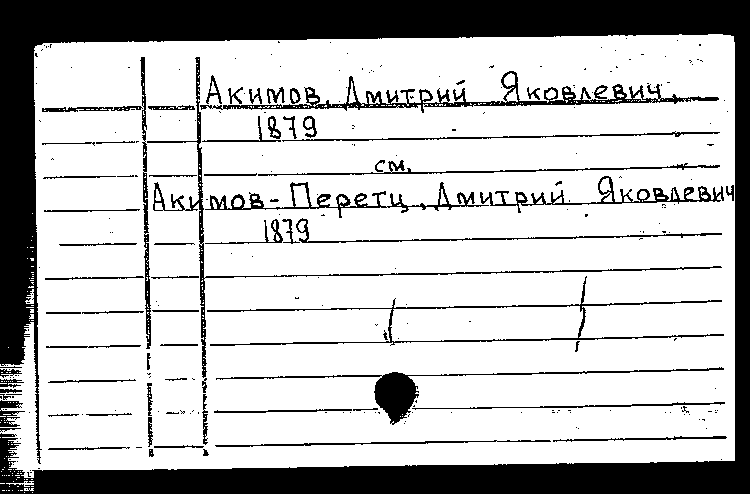 Акимов, Дмитрий Яковлевич,
1879
см.
Акимов-Перетц, Дмитрий Яковлевич
1879